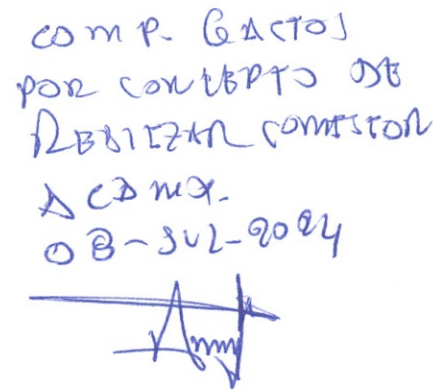 COMP. GASTOS
POR CONCEPTO DE
REALIZAR COMISION
A CDMX.
08-JUL-2024